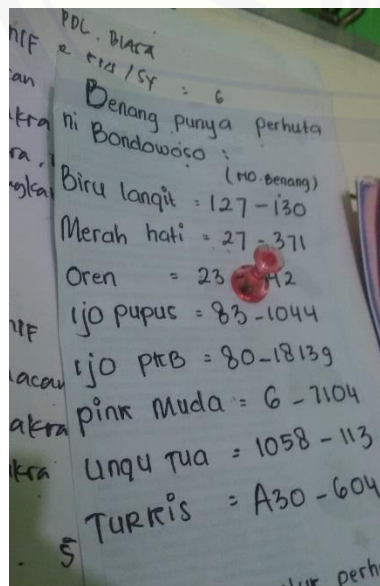 PDL. BIACA
: 6
Benang punya perhuta
ni Bondowoso :
(NO. Benang)
Biru langit = 127 - 130
Merah hati = 27 - 371
Oren = 23
ijo pupus = 83 - 1044
ijo PKB = 80 - 18139
pink Muda = 6 - 7104
ungu Tua = 1058 - 113
TURKIS = A30 - 604
5
perh